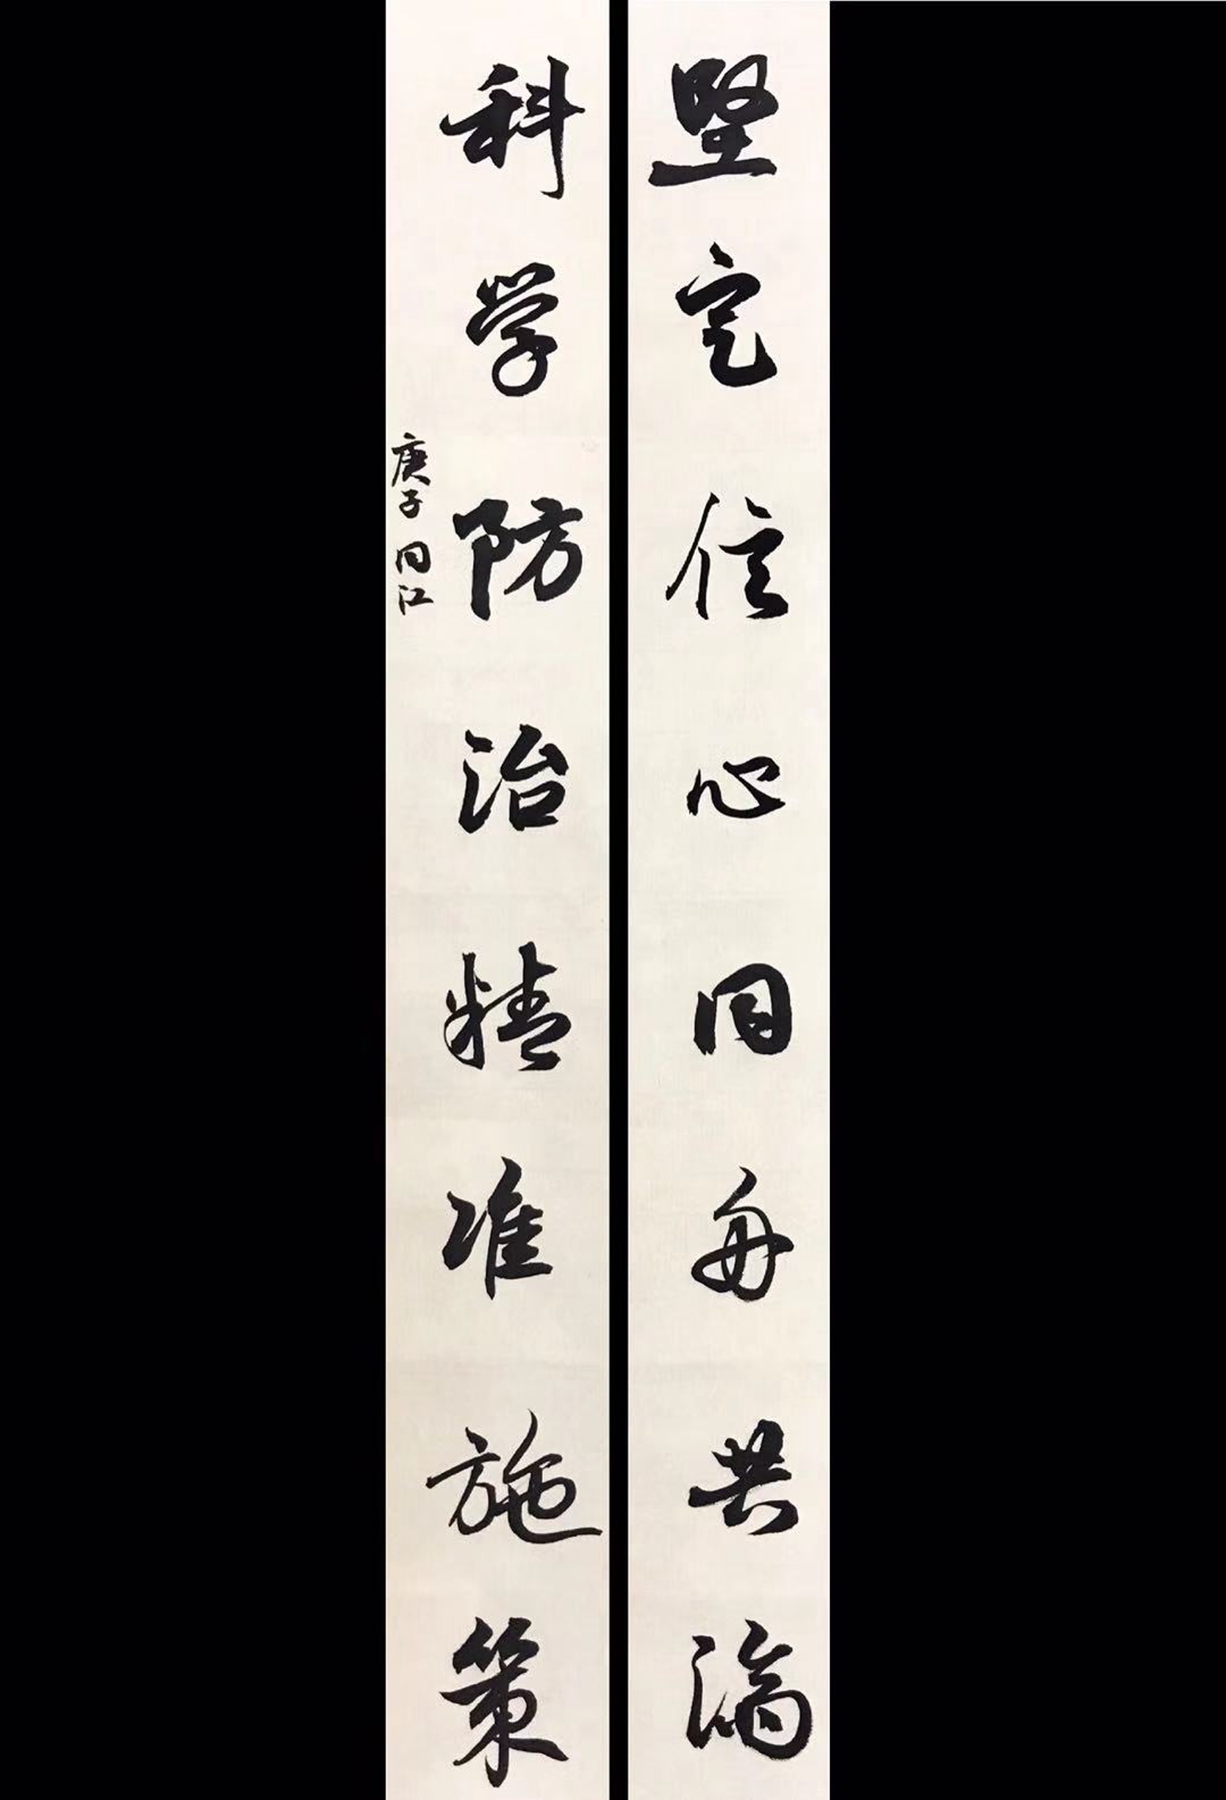 坚定信心同舟共济
科学防治精准施策
庚子同江